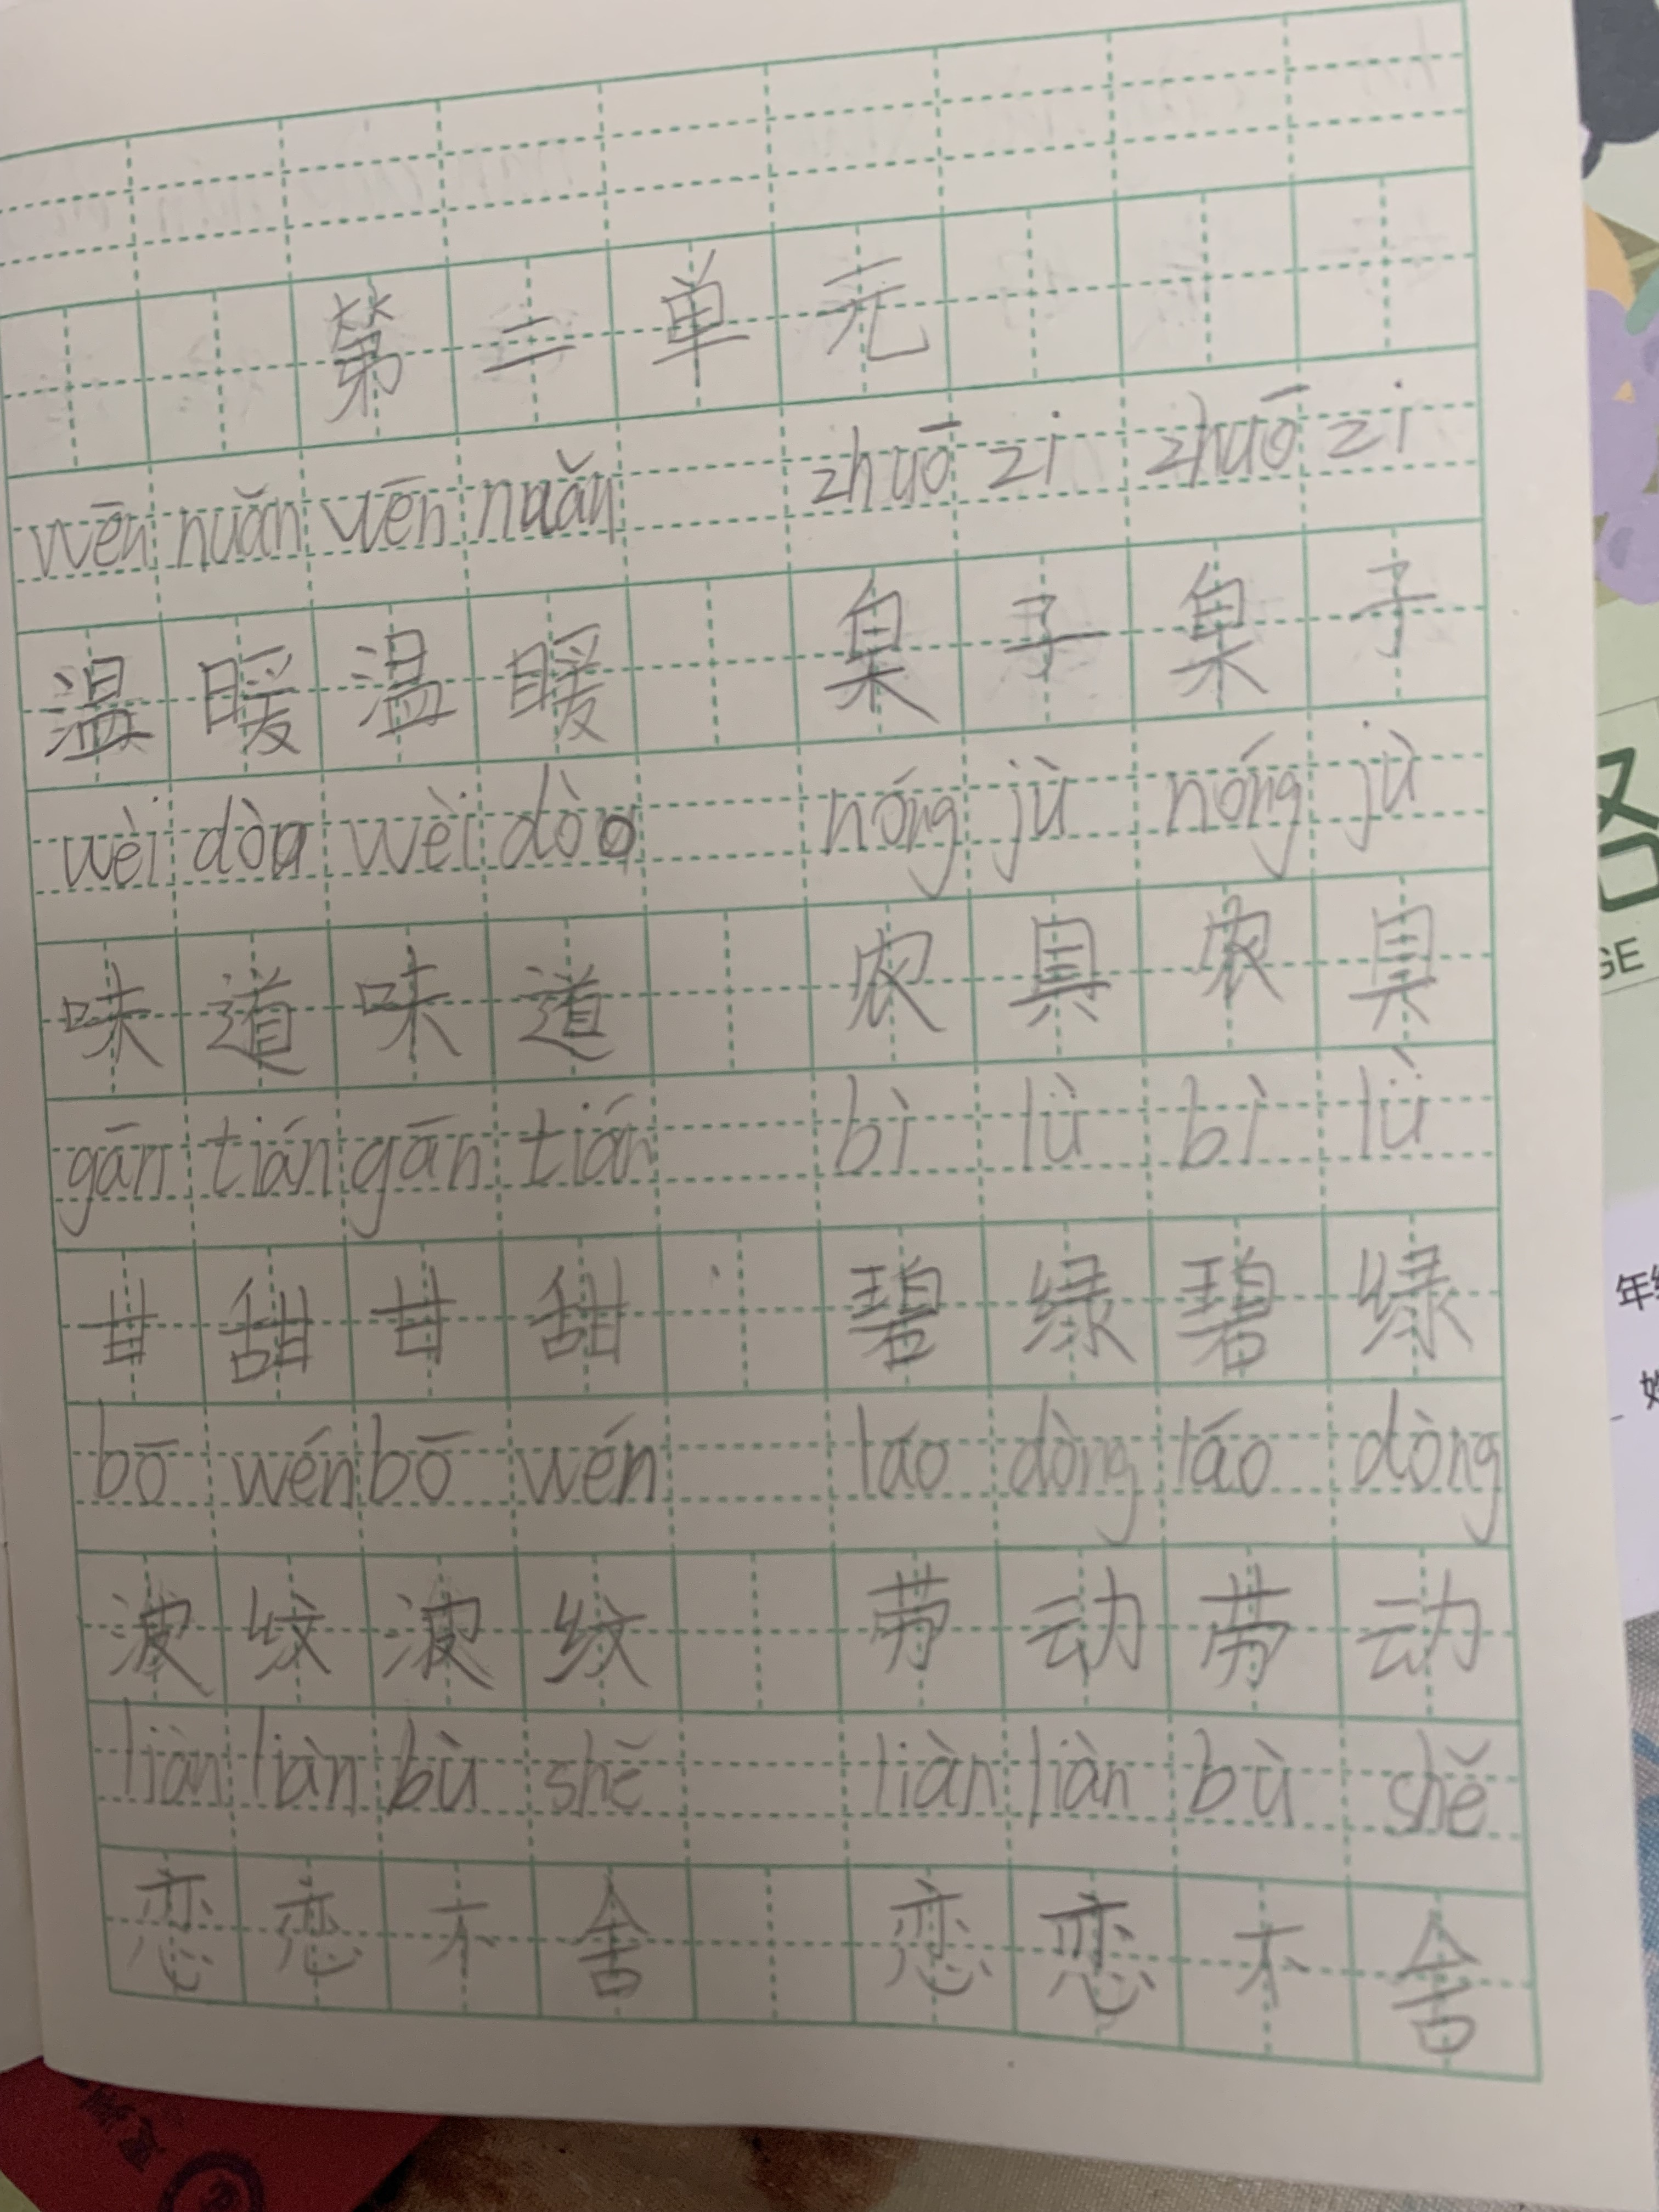 第二单元
wēn nuǎn wēn nuǎn zhuō zi zhuō zi
温暖温暖 桌子桌子
wèi dòo wèi dòo nóng jù nóng jù
味道味道 农具农具
gān tián gān tián bì lǜ bì lǜ
甘甜甘甜 碧绿碧绿
bō wén bō wén láo dòng láo dòng
波纹波纹 劳动劳动
liàn liàn bù shě liàn liàn bù shě
恋恋不舍 恋恋不舍
GE